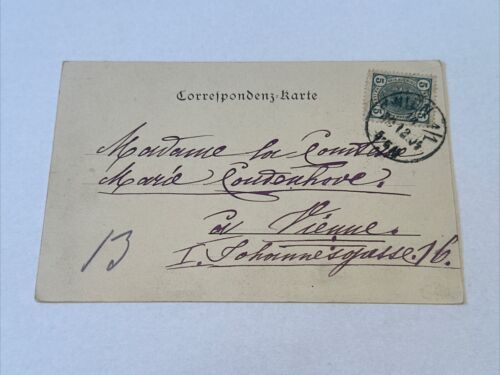 Correspondenz-Karte
5 5
Madame la Comtesse
Marie Coudenhove.
à Vienne.
I. Johannesgasse. 16.
13